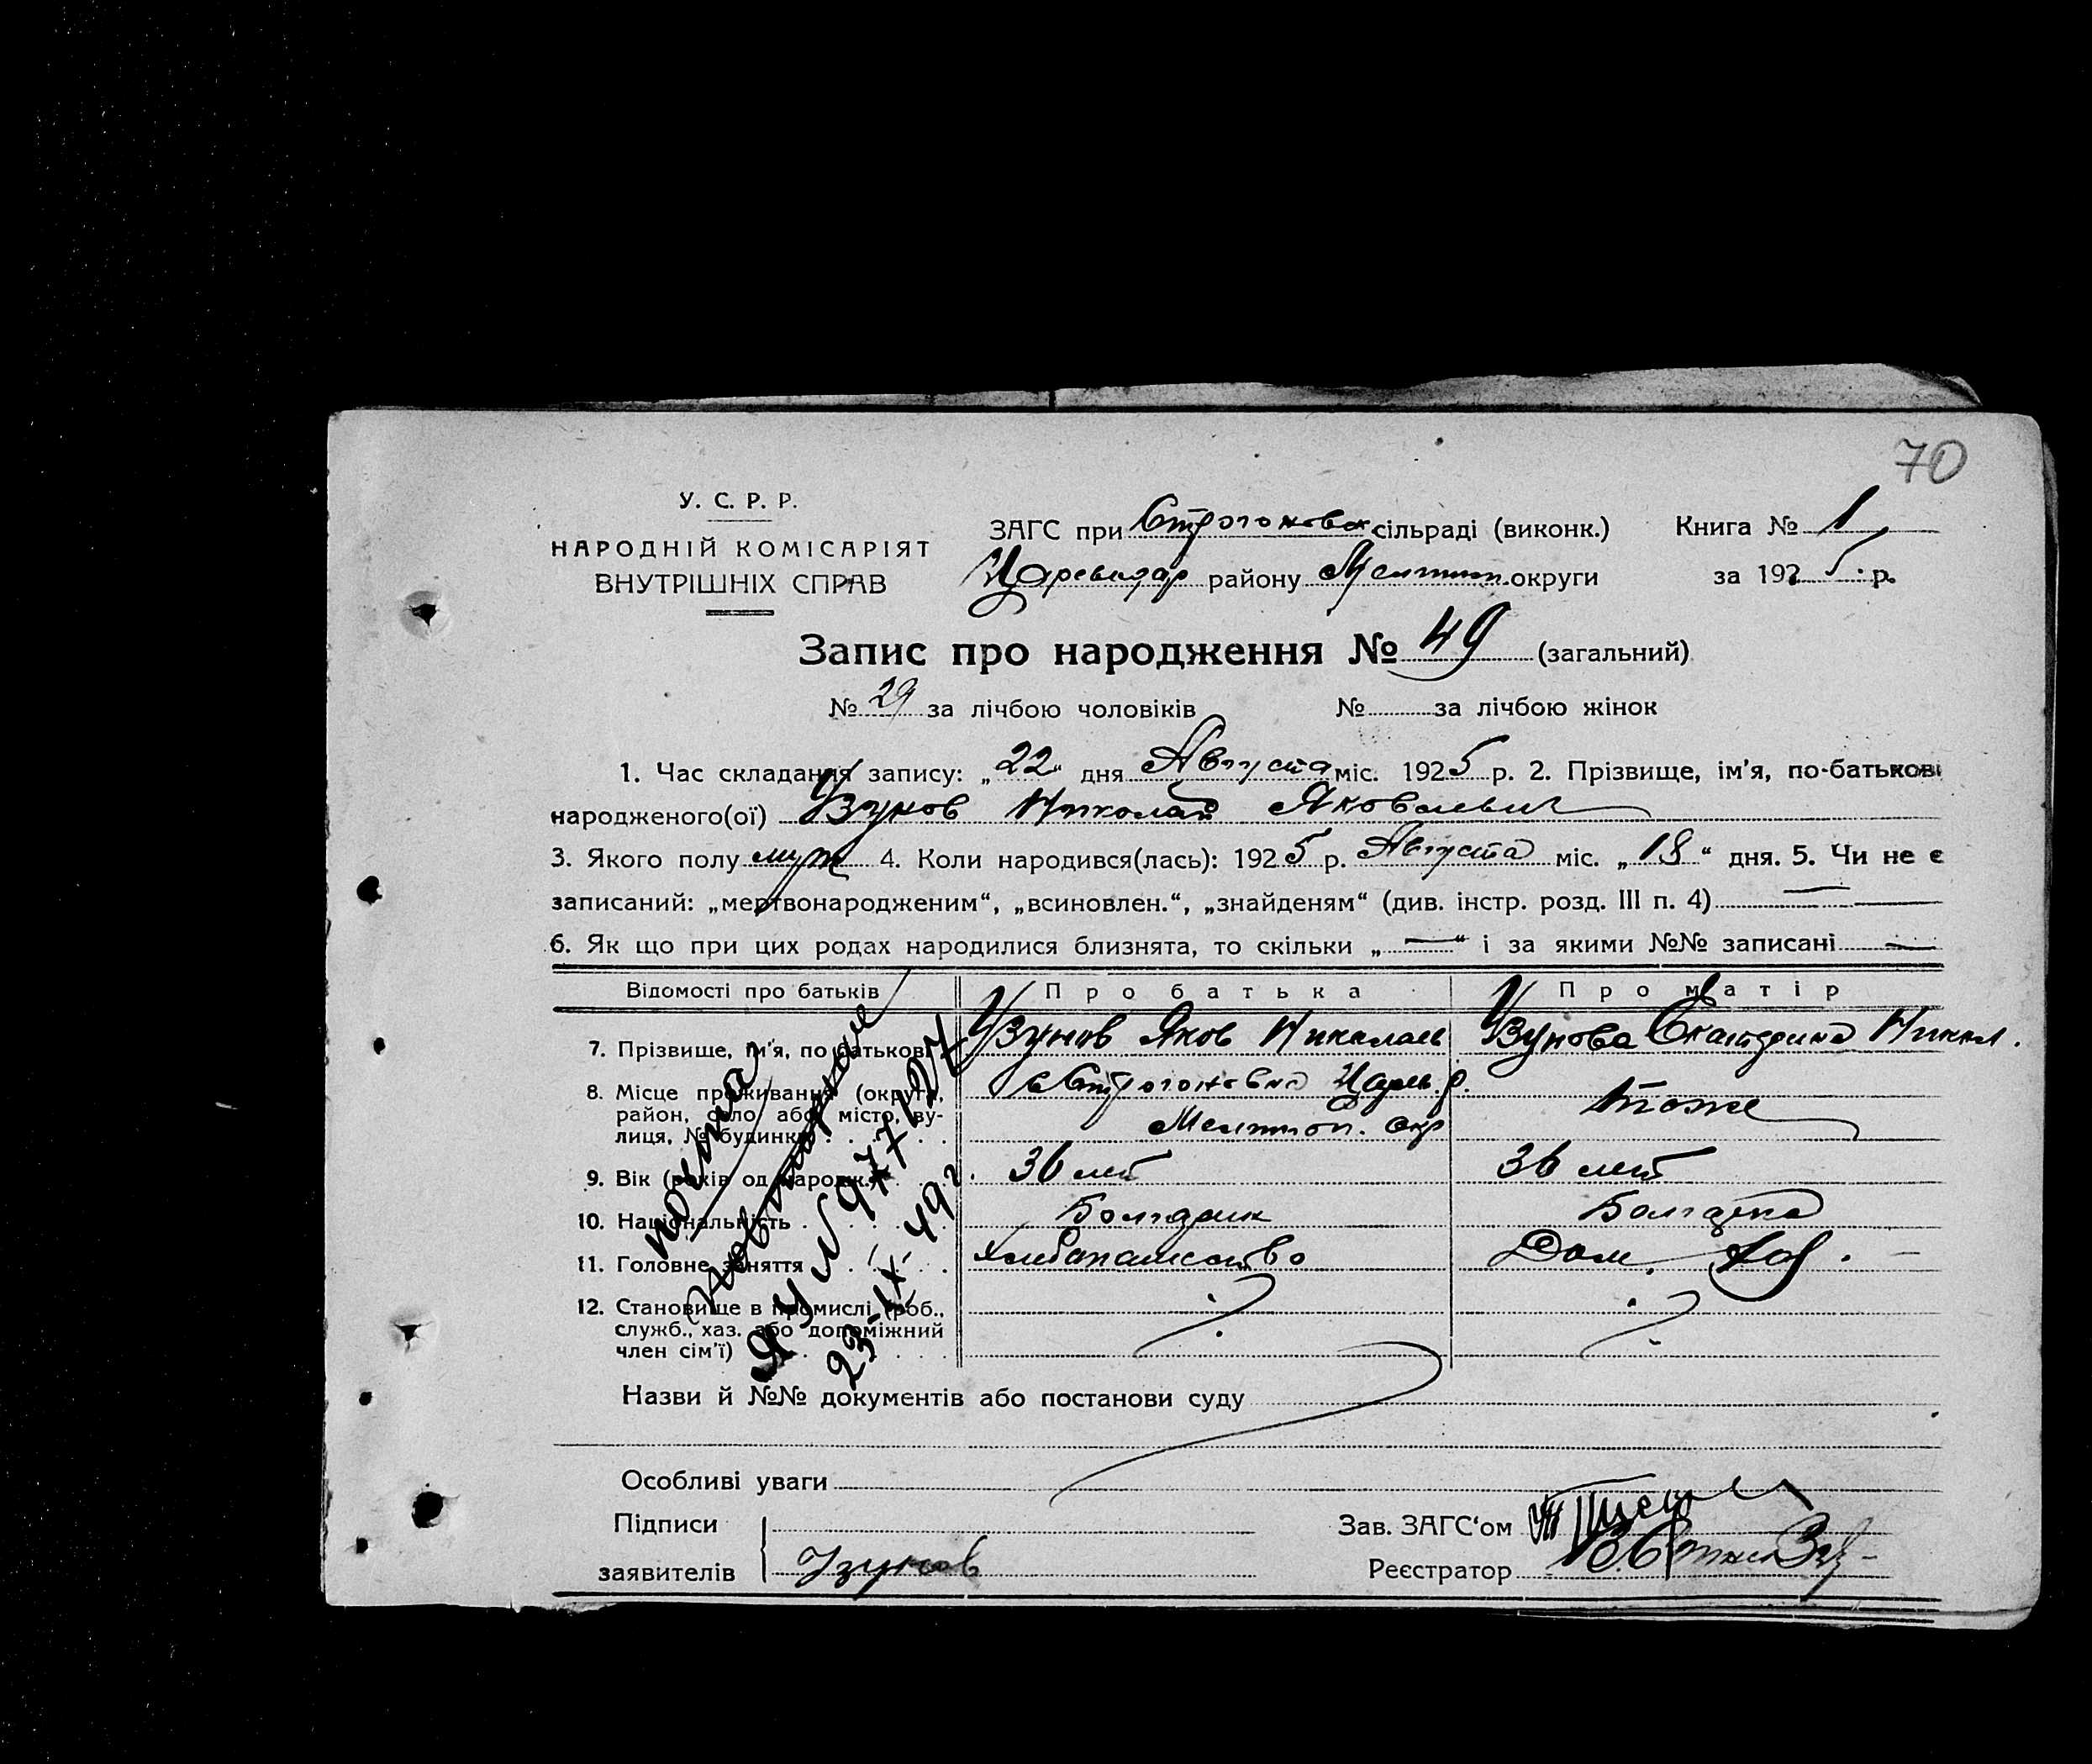 70
У. С. Р. Р.
НАРОДНІЙ КОМІСАРІЯТ
ВНУТРІШНІХ СПРАВ
ЗАГС при Строгоновск сільраді (виконк.) Книга № 1
Царевидар району Мелитоп. округи за 1925 р.
Запис про народження № 49 (загальний)
№ 29 за лічбою чоловіків № за лічбою жінок
1. Час складання запису: „22“ дня Августа міс. 1925 р. 2. Прізвище, ім'я, по-батькові
народженого(ої) Узунов Николай Яковлевич
3. Якого полу муж 4. Коли народився(лась): 1925 р. Августа міс. „18“ дня. 5. Чи не є
записаний: „мертвонародженим“, „всиновлен.“, „знайденям“ (див. інстр. розд. III п. 4) —
6. Як що при цих родах народилися близнята, то скільки „—“ і за якими №№ записані —
Відомості про батьків Про батька Про матір
7. Прізвище, ім'я, по батькові Узунов Яков Николаев Узунова Екатерина Никол.
8. Місце проживання (округа, район, село або місто, вулиця, № будинку) с Строгоновка Царев. р. Мелитоп. окр Тоже
9. Вік (років од народж.) 36 лет 36 лет
10. Національність Болгарин Болгарка
11. Головне заняття Хлебопашество Дом. Хоз. —
12. Становище в промислі (роб., служб., хаз. або допоміжний член сім'ї)
повторное
ЯУ № 977127
23-IX-49 г
Назви й №№ документів або постанови суду
Особливі уваги
Підписи заявителів Узунов
Зав. ЗАГС'ом
Реєстратор